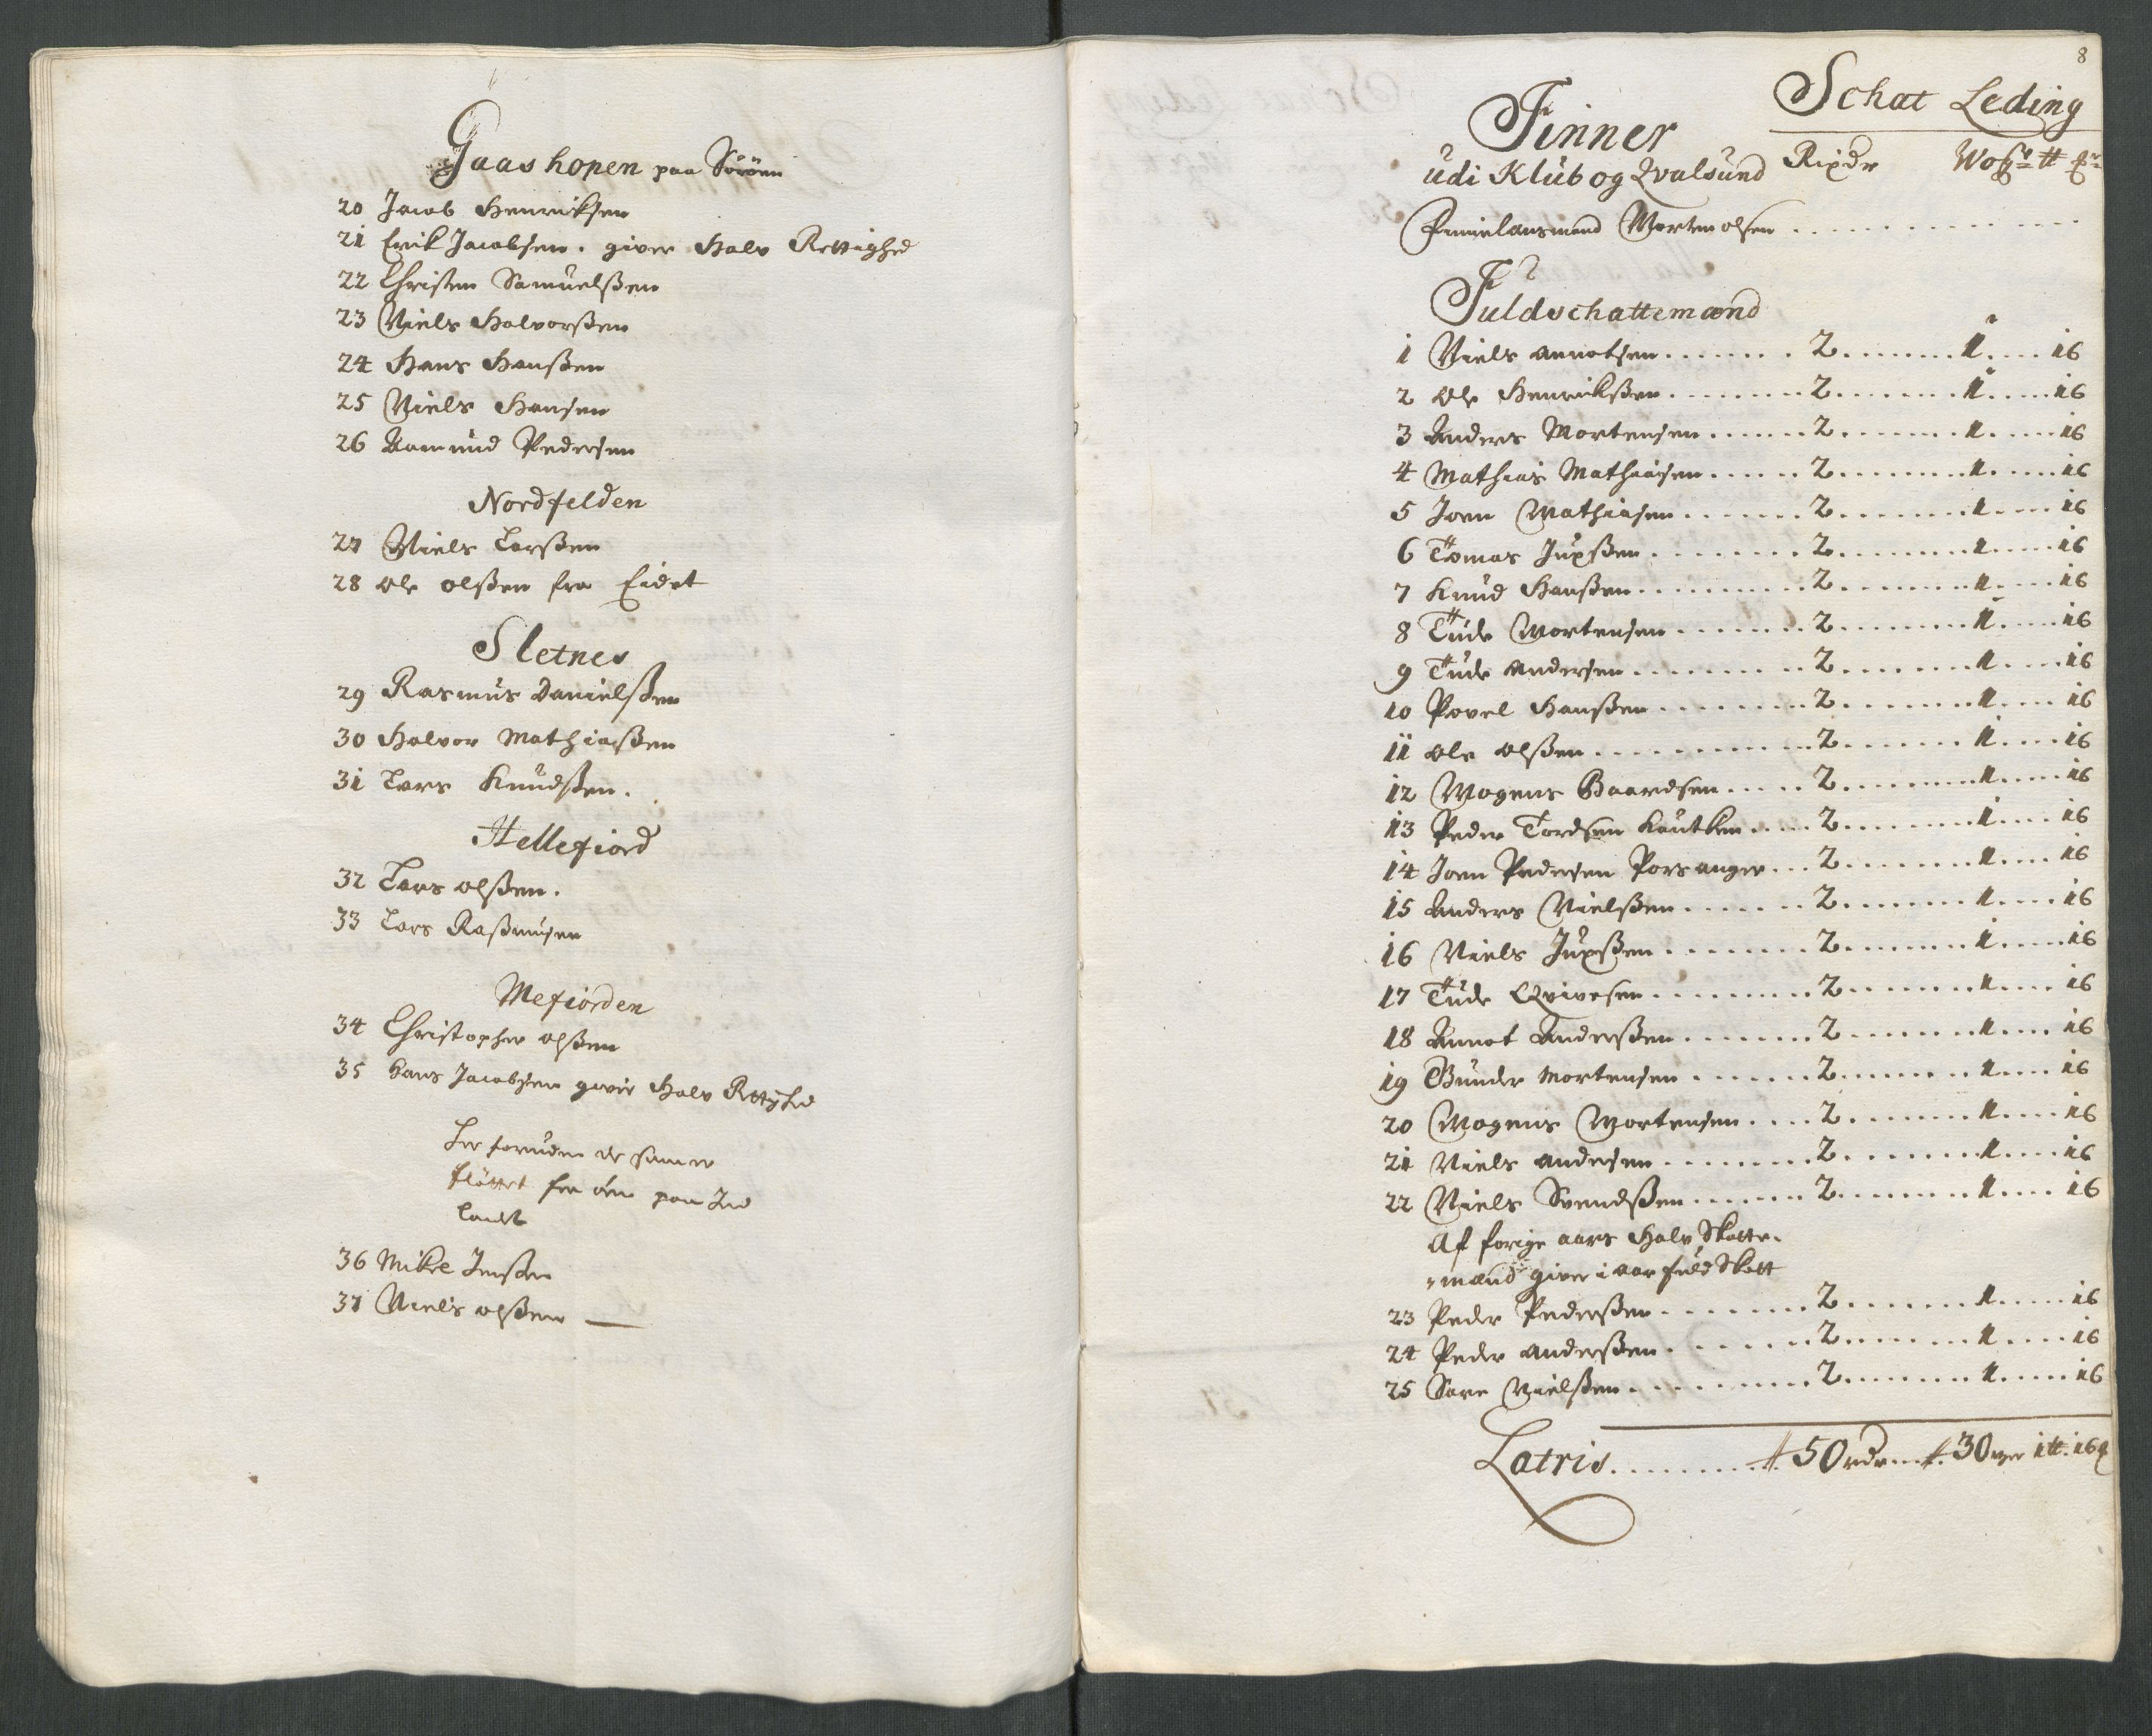 Gaashopen paa Söröen
20 Jacob Henricksen
21 Erik Jacobsen. giver Halv Rettighed
22 Christen Samuelßen
23 Niels Halvorßen
24 Hans Hanßen
25 Niels Hansen
26 Aamund Pedersen
Nordfelden
27 Niels Larßen
28 Ole olßen fra Eidet
Sletnes
29 Rasmus Danielßen
30 Halvor Mathiaßen
31 Lars Knudßen.
Hellefiord
32 Lars olßen.
33 Lars Raßmusen
Mefiorden
34 Christopher olßen
35 Hans Jacobsen giver Halv Rettighed
Her foruden de som er
flöttet fra öen paa Ind
Landet
36 Mikel Jenßen
37 Niels olßen
8
Schat Leding
Finner
udi Klub og Qvalsund Rixdr Woger ʉ
Finnelansmand Morten olsen
Fuldschattemænd
1 Niels Annotsen 2 1 16
2 Ole Henrikßen 2 1 16
3 Anders Mortensen 2 1 16
4 Mathias Mathiasen 2 1 16
5 Joen Mathiasen 2 1 16
6 Tomas Jupßen 2 1 16
7 Knud Hanßen 2 1 16
8 Tude Mortensen 2 1 16
9 Tude Andersen 2 1 16
10 Povel Hanßen 2 1 16
11 Ole olßen 2 1 16
12 Mogens Baardsen 2 1 16
13 Peder Tordsen Kautken 2 1 16
14 Joen Pedersen Porsanger 2 1 16
15 Anders Nielßen 2 1 16
16 Niels Jupßen 2 1 16
17 Tude Qvivesen 2 1 16
18 Annot Anderßen 2 1 16
19 Gunder Mortensen 2 1 16
20 Mogens Mortensen 2 1 16
21 Niels Andersen 2 1 16
22 Niels Svendßen 2 1 16
Af forige aars Halv Skatte-
mænd giver i aar fuld Skatt
23 Peder Pederßen 2 1 16
24 Peder Anderßen 2 1 16
25 Sare Nielßen 2 1 16
Latris 50 rdr 30 wger 1 ʉ. 16